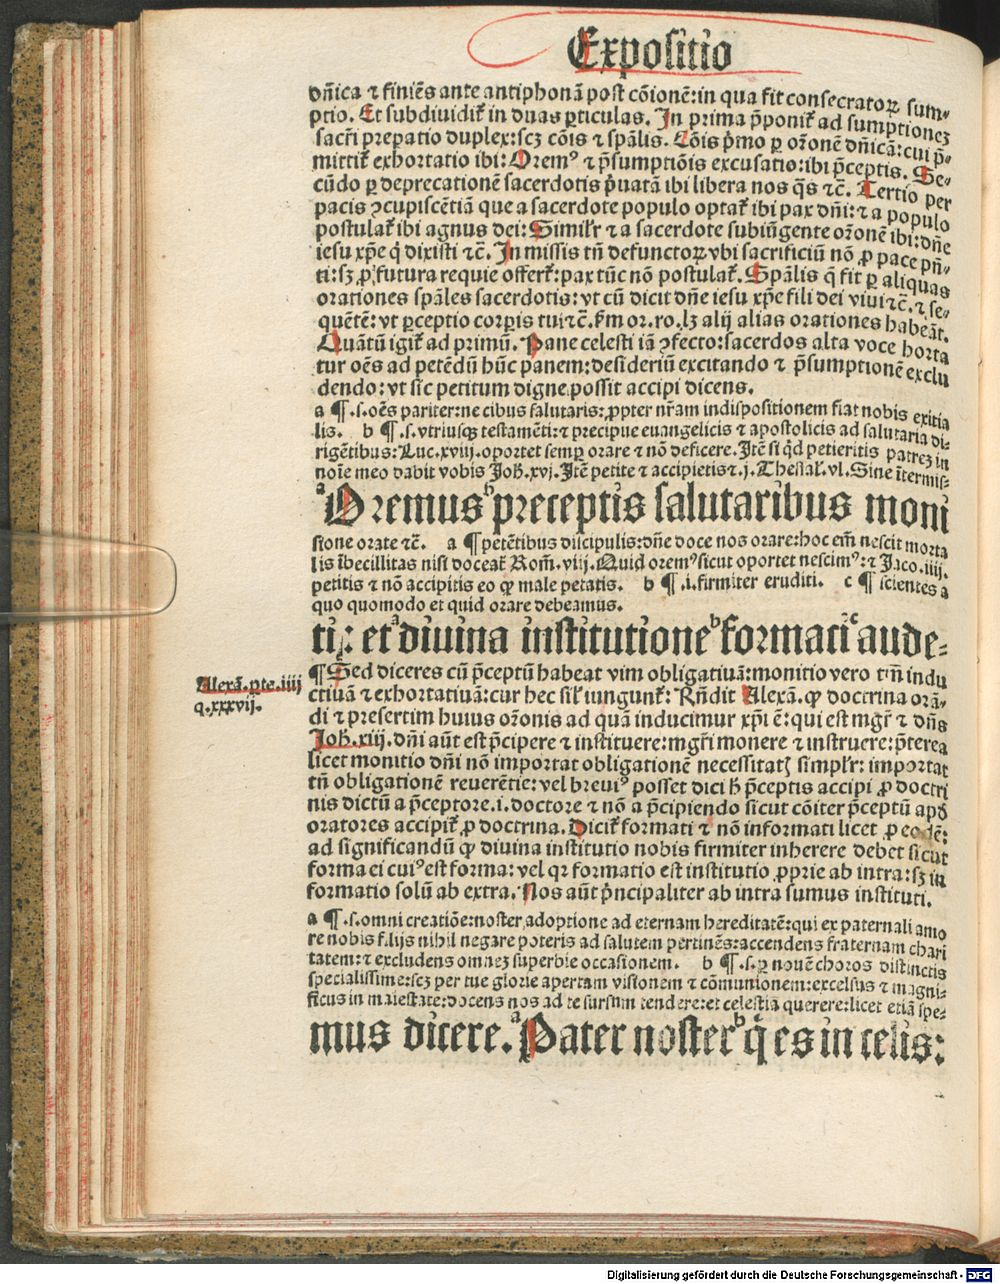 Expositio
dñica ⁊ finiẽs ante antiphonã post cõionẽ: in qua fit consecratoꝝ sum⸗
ptio. Et subdiuidit̃ in duas ꝑticulas. In prima p̃ponit̃ ad sumptionez
sacr̃i prepatio duplex: scꝫ cõis ⁊ sp̃alis. Cõis p̃mo ꝑ or̃onẽ dñicã: cui p̃⸗
mittit̃ exhortatio ibi: Oremꝰ ⁊ p̃sumptiõis excusatio: ibi p̃ceptis. Se⸗
cũdo ꝑ deprecationẽ sacerdotis p̃uatã ibi libera nos q̃s ⁊c̃. Tertio per
pacis ↄcupiscẽtiã que a sacerdote populo optat̃ ibi pax dñi: ⁊ a populo
postulat̃ ibi agnus dei: Similr̃ ⁊ a sacerdote subiũgente or̃onẽ ibi: dñe
iesu xp̃e q̃ dixisti ⁊c̃. In missis tñ defunctoꝝ vbi sacrificiũ nõ ꝓ pace pñ⸗
ti: sꝫ ꝓ futura requie offert̃: pax tũc nõ postulat̃. Sp̃alis q̃ fit ꝑ aliquas
orationes sp̃ales sacerdotis: vt cũ dicit dñe iesu xp̃e fili dei viui ⁊c̃. ⁊ se⸗
quẽtẽ: vt ꝑceptio corꝑis tui ⁊c̃. s̃m or. ro. lꝫ alij alias orationes habeãt.
Quãtũ igit̃ ad primũ. Pane celesti iã ↄfecto: sacerdos alta voce horta
tur oẽs ad petẽdũ hũc panem: desideriũ excitando ⁊ p̃sumptionẽ exclu
dendo: vt sic petitum digne possit accipi dicens.
a ¶ .s. oẽs pariter: ne cibus salutaris: ꝓpter nr̃am indispositionem fiat nobis exitia
lis. b ¶ .s. vtriusqꝫ testamẽti: ⁊ precipue euangelicis ⁊ apostolicis ad salutaria di⸗
rigẽtibus: Luc. xviij. oportet semꝑ orare ⁊ nõ deficere. Itẽ si q̃d petieritis patrez in
noĩe meo dabit vobis Joh̃. xvj. Itẽ petite ⁊ accipietis ⁊. j. Thessal̃. vl. Sine ĩtermis⸗
a Oremus b preceptis salutaribus moni
sione orate ⁊c̃. a ¶ petẽtibus discipulis: dñe doce nos orare: hoc em̃ nescit morta
lis ĩbecillitas nisi doceat̃ Rom̃. viij. Quid oremꝰ sicut oportet nescimꝰ: ⁊ Jaco. iiij.
petitis ⁊ nõ accipitis eo ꝙ male petatis. b ¶ .i. firmiter eruditi. c ¶ scientes a
quo quomodo et quid orare debeamus.
tis: et a diuina institutione b formati c aude⸗
¶ Sed diceres cũ p̃ceptũ habeat vim obligatiuã: monitio vero tm̃ indu
ctiuã ⁊ exhortatiuã: cur hec sil̃ iungunt̃: Rñdit Alexã. ꝙ doctrina orã⸗
di ⁊ presertim huius or̃onis ad quã inducimur xp̃i ẽ: qui est mgr̃ ⁊ dñs
Joh̃. xiij. dñi aũt est p̃cipere ⁊ instituere: mgr̃i monere ⁊ instruere: p̃terea
licet monitio dñi nõ importat obligationẽ necessitatꝭ simplr̃: importat
tñ obligationẽ reuerẽtie: vel breuiꝰ posset dici h̃ p̃ceptis accipi ꝓ doctri
nis dictũ a p̃ceptore .i. doctore ⁊ nõ a p̃cipiendo sicut cõiter p̃ceptũ apd̃
oratores accipit̃ ꝓ doctrina. Dicit̃ formati ⁊ nõ informati licet ꝓ eodẽ:
ad significandũ ꝙ diuina institutio nobis firmiter inherere debet sicut
forma ei cuiꝰ est forma: vel qr formatio est institutio ꝓprie ab intra: sꝫ in
formatio solũ ab extra. Nos aũt p̃ncipaliter ab intra sumus instituti.
a ¶ .s. omni creatiõe: noster adoptione ad eternam hereditatẽ: qui ex paternali amo
re nobis filijs nihil negare poteris ad salutem pertinẽs: accendens fraternam chari
tatem: ⁊ excludens omnez superbie occasionem. b ¶ .s. ꝑ nouẽ choros distinctis
specialissime: scꝫ per tue glorie apertam visionem ⁊ cõmunionem: excelsus ⁊ magni⸗
ficus in maiestate: docens nos ad te sursum tendere: et celestia querere: licet etiã spe⸗
mus dicere. a Pater noster b q̃ es in celis:
Alexã. pte. iiij
q. xxxvij.
Digitalisierung gefördert durch die Deutsche Forschungsgemeinschaft - DFG